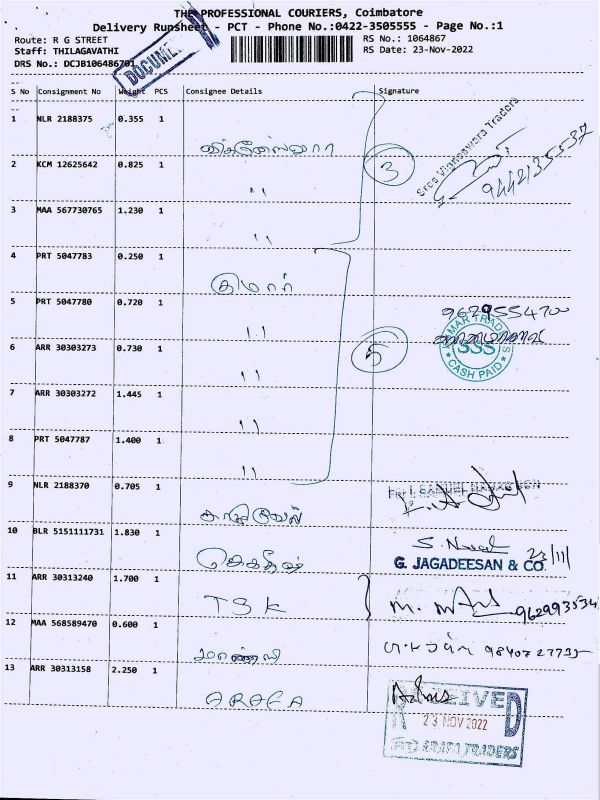 THE PROFESSIONAL COURIERS, Coimbatore
Delivery Runsheet - PCT - Phone No.:0422-3505555 - Page No.:1
Route: R G STREET
RS No.: 1064867
Staff: THILAGAVATHI
RS Date: 23-Nov-2022
DRS No.: DCJB106486701
DOCUMENT
S No Consignment No Weight PCS Consignee Details Signature
1 NLR 2188375 0.355 1
Sree Vigneswara Traders
9442135537
3
2 KCM 12625642 0.825 1 ,,
3 MAA 567730765 1.230 1 ,,
4 PRT 5047783 0.250 1 குமார்
5 PRT 5047780 0.720 1 ,,
9629554700
KUMAR TRADERS
SSS
CASH PAID
5
6 ARR 30303273 0.730 1 ,,
7 ARR 30303272 1.445 1 ,,
8 PRT 5047787 1.400 1 ,,
9 NLR 2188370 0.705 1
10 BLR 5151111731 1.830 1 ஜெகதீஷ்
23/11/
G. JAGADEESAN & CO.
11 ARR 30313240 1.700 1 TSK
12 MAA 568589470 0.600 1
13 ARR 30313158 2.250 1 ARAFA
RECEIVED
23 NOV 2022
ARAFA TRADERS